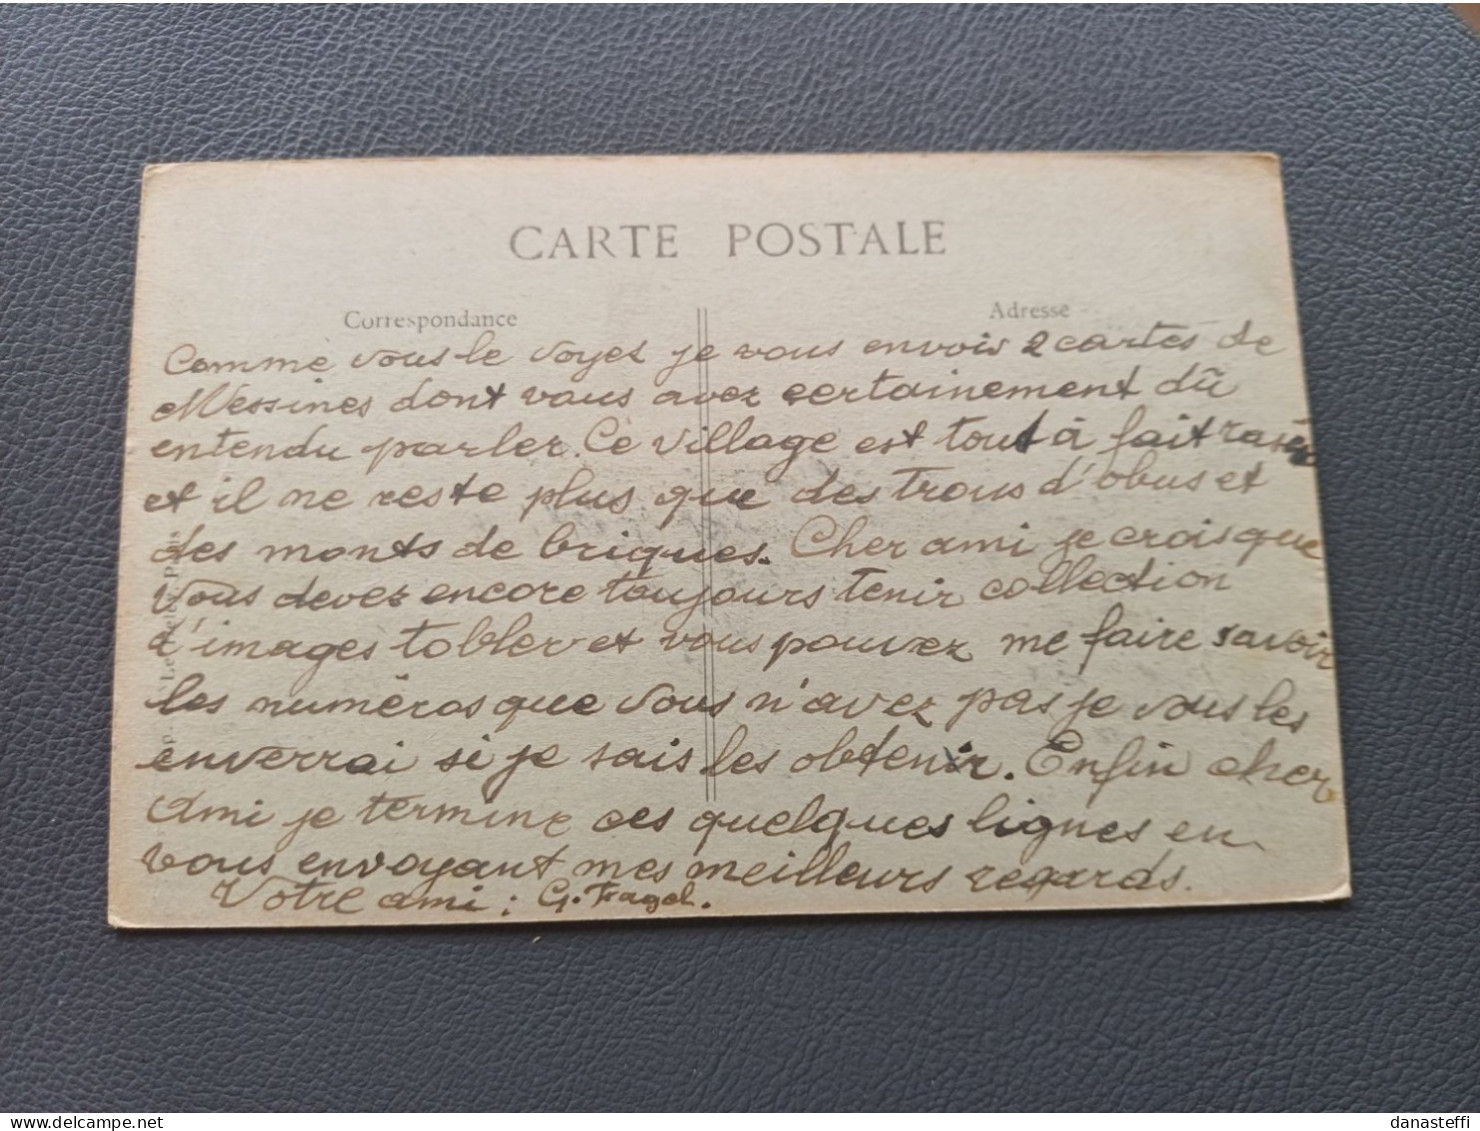 CARTE POSTALE
Correspondance
Adresse
Comme vous le voyez je vous envois 2 cartes de
Messines dont vous avez certainement dû
entendu parler. Ce village est tout à fait rasé
et il ne reste plus que des trous d'obus et
des monts de briques. Cher ami je crois que
Vous devez encore toujours tenir collection
d'images tobler et vous pouvez me faire savoir
les numéros que vous n'avez pas je vous les
enverrai si je sais les obtenir. Enfin cher
Ami je termine ces quelques lignes en
vous envoyant mes meilleurs regards.
Votre ami : G. Fagel.
danasteffi